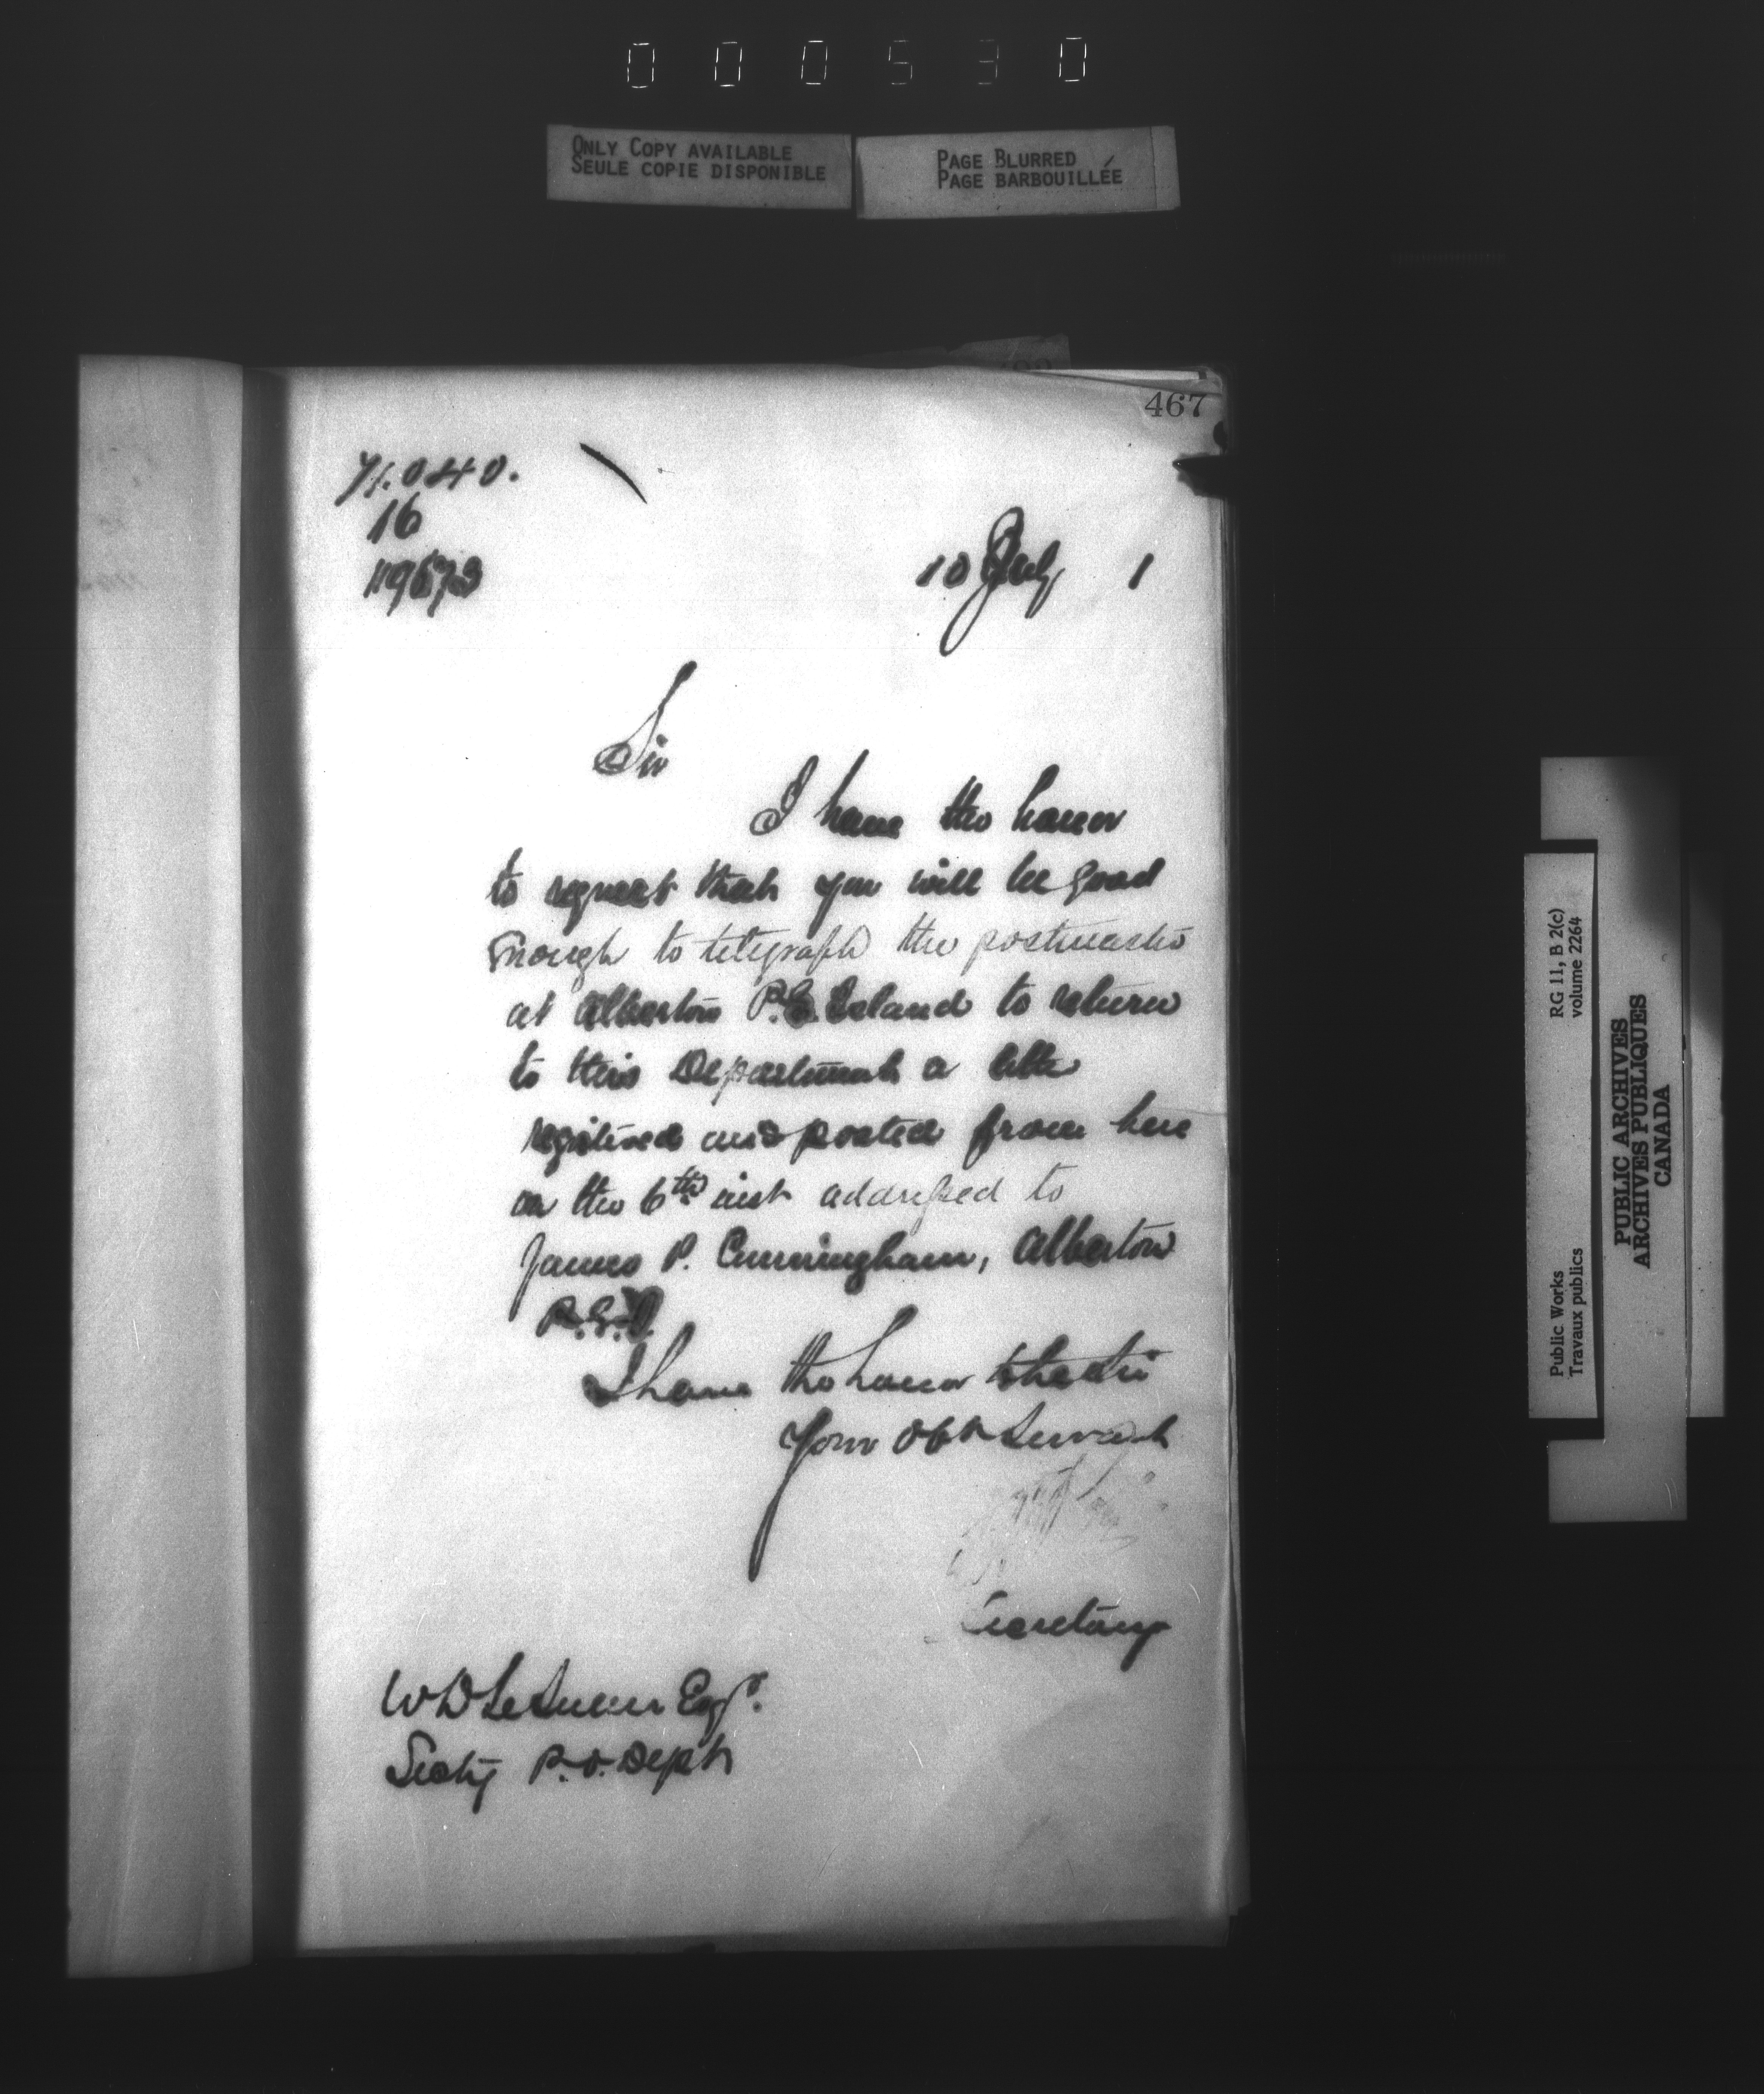 000530
ONLY COPY AVAILABLE
SEULE COPIE DISPONIBLE
PAGE BLURRED
PAGE BARBOUILLÉE
467
71.040.
16
119673
10 July 1
Sir
I have the honor
to request that you will be good
enough to telegraph the postmaster
at Alberton P.E. Island to return
to this Department a letter
registered and posted from here
on the 6th inst addressed to
James P. Cunningham, Alberton
P.E.I.
I have the honor to be Sir
Your Obt Servant
Secretary
W D LeSueur Esqr.
Secty P.O. Dept
RG 11, B 2(c)
volume 2264
Public Works
Travaux publics
PUBLIC ARCHIVES
ARCHIVES PUBLIQUES
CANADA